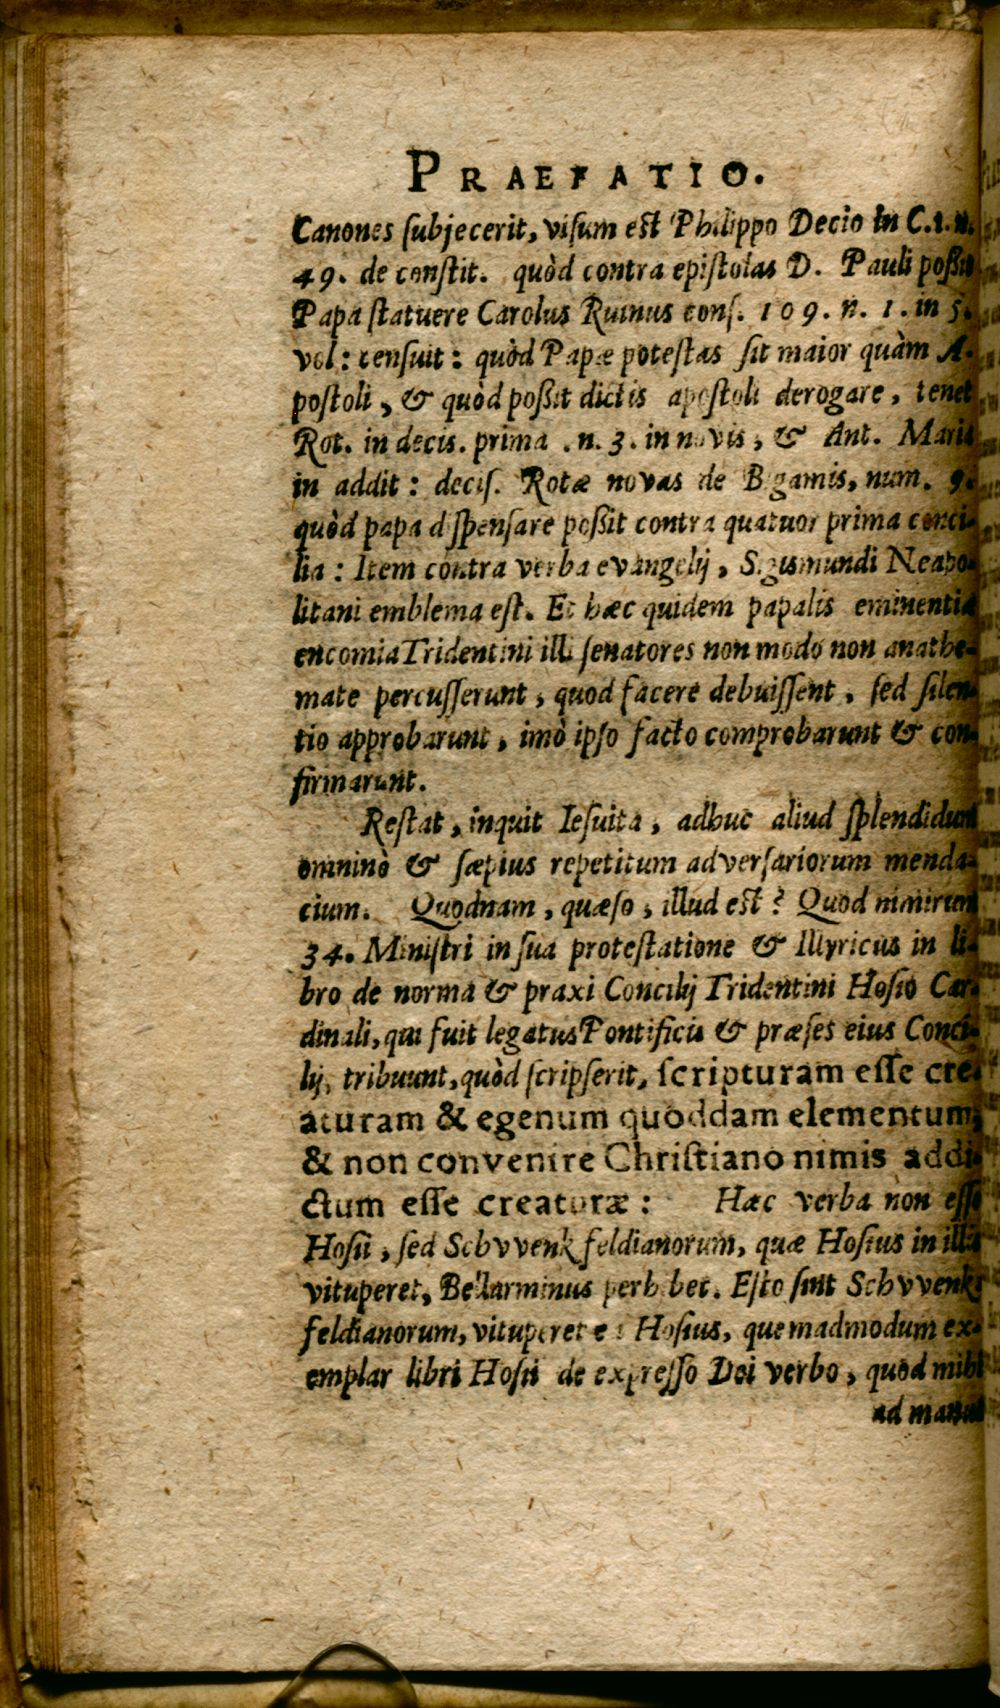 PRAEFATIO.
Canones subjecerit, visum est Philippo Decio in C.1.n.
49. de constit. quòd contra epistolas D. Pauli possit
Papa statuere Carolus Ruinus cons. 109. n. 1. in 5.
vol: censuit: quòd Papæ potestas sit maior quàm A-
postoli, & quòd possit dictis apostoli derogare, tenet
Rot. in decis. prima .n. 3. in novis, & Ant. Maria
in addit: decis. Rotæ novas de Bigamis, num. 9.
quòd papa dispensare possit contra quatuor prima conci-
lia: Item contra verba evangelij, Sigismundi Neapo-
litani emblema est. Et hæc quidem papalis eminentiæ
encomia Tridentini illi senatores non modo non anathe-
mate percusserunt, quod facere debuissent, sed silen-
tio approbarunt, imò ipso facto comprobarunt & con-
firmarunt.
Restat, inquit Iesuita, adhuc aliud splendidum
omninò & sæpius repetitum adversariorum menda-
cium. Quodnam, quæso, illud est? Quod nimirum
34. Ministri in sua protestatione & Illyricus in li-
bro de norma & praxi Concilij Tridentini Hosio Car-
dinali, qui fuit legatus Pontificis & præses eius Conci-
lij, tribuunt, quòd scripserit, scripturam esse cre-
aturam & egenum quoddam elementum,
& non convenire Christiano nimis addi-
ctum esse creaturæ: Hæc verba non esse
Hosii, sed Schvvenkfeldianorum, quæ Hosius in illis
vituperet, Bellarminus perhibet. Esto sint Schvvenk-
feldianorum, vituperet ea Hosius, quemadmodum ex-
emplar libri Hosii de expresso Dei verbo, quod mihi
ad manus